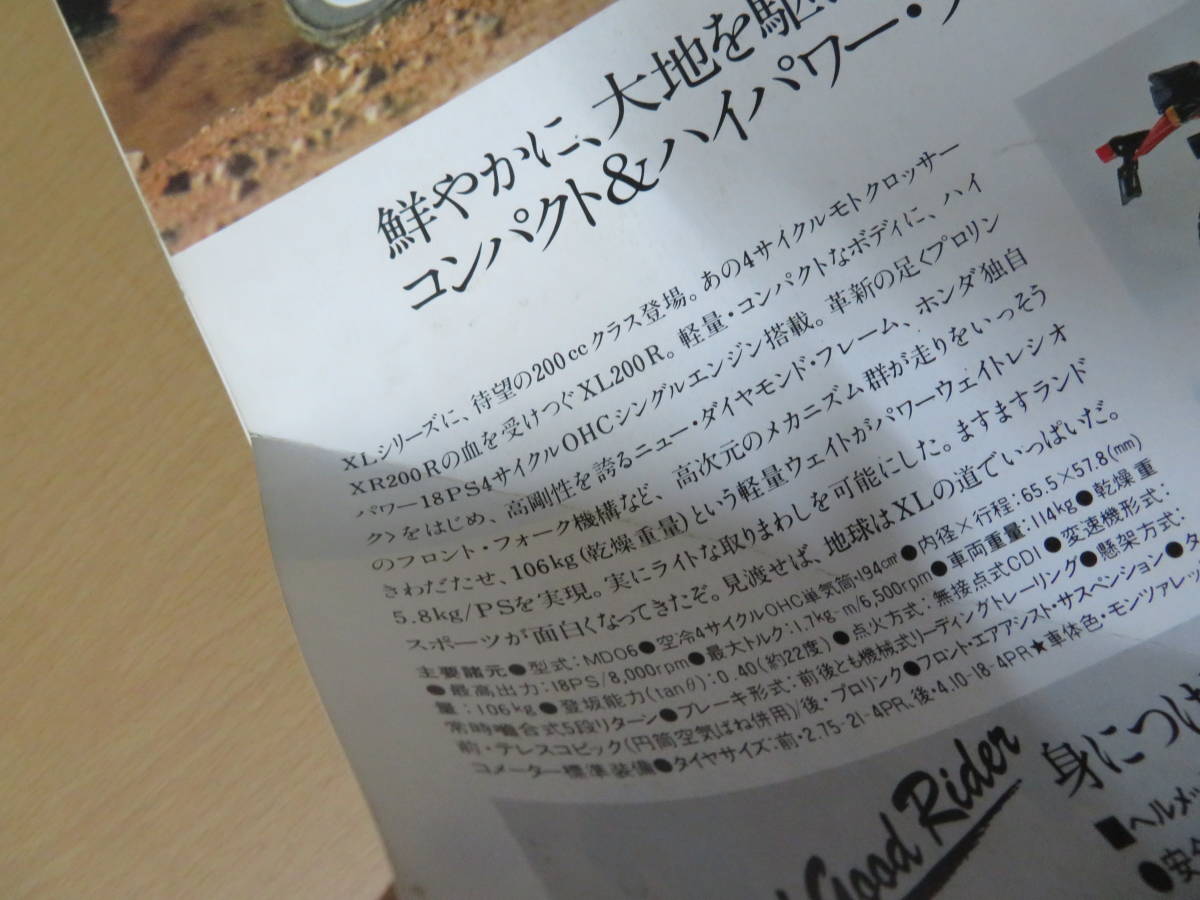 鮮やかに、大地を駆け
コンパクト&ハイパワー・
XLシリーズに、待望の200ccクラス登場。あの4サイクルモトクロッサー
XR200Rの血を受けつぐXL200R。軽量・コンパクトなボディに、ハイ
パワー18PS4サイクルOHCシングルエンジン搭載。革新の足くプロリン
ク〉をはじめ、高剛性を誇るニュー・ダイヤモンド・フレーム、ホンダ独自
のフロント・フォーク機構など、高次元のメカニズム群が走りをいっそう
きわだたせ、106kg(乾燥重量)という軽量ウェイトがパワーウェイトレシオ
5.8kg/PSを実現。実にライトな取りまわしを可能にした。ますますランド
スポーツが面白くなってきたぞ。見渡せば、地球はXLの道でいっぱいだ。
主要諸元●型式:MD06●空冷4サイクルOHC単気筒・194cm³●内径×行程:65.5×57.8(mm)
●最高出力:18PS/8,000rpm●最大トルク:1.7kg-m/6,500rpm●車両重量:114kg●乾燥重
量:106kg●登坂能力(tanθ):0.40(約22度)●点火方式:無接点式CDI●変速機形式:
常時噛合式5段リターン●ブレーキ形式:前後とも機械式リーディングトレーリング●懸架方式:
前・テレスコピック(円筒空気ばね併用)/後・プロリンク●フロント・エアアシスト・サスペンション●タ
コメーター標準装備●タイヤサイズ:前・2.75-21-4PR、後・4.10-18-4PR★車体色・モンツァレッ
Good Rider
身につけ
■ヘルメッ
●安全